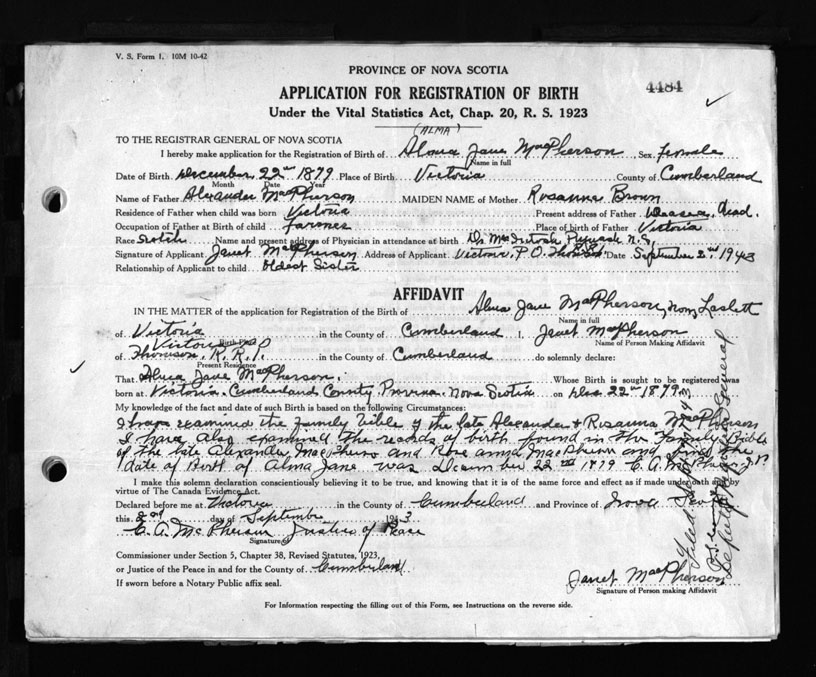 V. S. Form 1. 10M 10-42
PROVINCE OF NOVA SCOTIA
4484
APPLICATION FOR REGISTRATION OF BIRTH
Under the Vital Statistics Act, Chap. 20, R. S. 1923
(ALMA)
TO THE REGISTRAR GENERAL OF NOVA SCOTIA
I hereby make application for the Registration of Birth of Alma Jane MacPherson, Sex female
Name in full
Date of Birth December 22nd 1879 Place of Birth Victoria County of Cumberland
Month Date Year
Name of Father Alexander MacPherson MAIDEN NAME of Mother Rosanna Brown
Residence of Father when child was born Victoria Present address of Father Dead.
Occupation of Father at Birth of child farmer Place of birth of Father Victoria
Race Scotch Name and present address of Physician in attendance at birth Dr. MacIntosh Pugwash N.S.
Signature of Applicant Janet MacPherson Address of Applicant Victoria, P.O. Thomson Date September 2nd 1943
Relationship of Applicant to child oldest Sister
AFFIDAVIT
IN THE MATTER of the application for Registration of the Birth of Alma Jane MacPherson, Now Laslett
Name in full
of Victoria in the County of Cumberland I, Janet MacPherson
Birth Place Name of Person Making Affidavit
Victoria
of Thomson, R.R.1. in the County of Cumberland do solemnly declare:
Present Residence
That Alma Jane MacPherson. Whose Birth is sought to be registered was
born at Victoria, Cumberland County Province Nova Scotia on Dec 22nd 1879
My knowledge of the fact and date of such Birth is based on the following Circumstances:
I have examined the family bible of the late Alexander & Rosanna McPherson
I have also examined the records of birth found in the family Bible
of the late Alexander MacPherson and Rose anna MacPherson and find the
date of Birth of Alma Jane was December 22nd 1879 C. A. McPherson J.P.
I make this solemn declaration conscientiously believing it to be true, and knowing that it is of the same force and effect as if made under oath and by
virtue of The Canada Evidence Act.
Declared before me at Victoria in the County of Cumberland and Province of Nova Scotia
this 2nd day of September 1943
C. A. McPherson Justice of Peace
Signature
Commissioner under Section 5, Chapter 38, Revised Statutes, 1923,
or Justice of the Peace in and for the County of Cumberland
If sworn before a Notary Public affix seal.
Janet MacPherson
Signature of Person making Affidavit
For Information respecting the filling out of this Form, see Instructions on the reverse side.
Filed
Deputy Registrar General